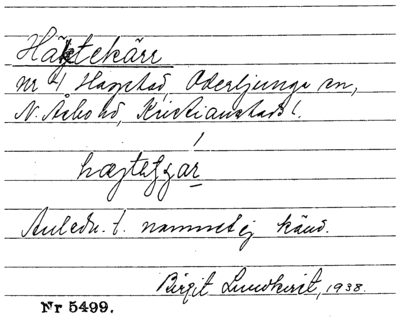 Häktekärr
nr 4 Hagstad, Oderljunga sn,
N. Åsbo hd, Kristianstads l.
Anledn. t. namnet ej känd.
Birgit Lundkvist, 1938.
Nr 5499.